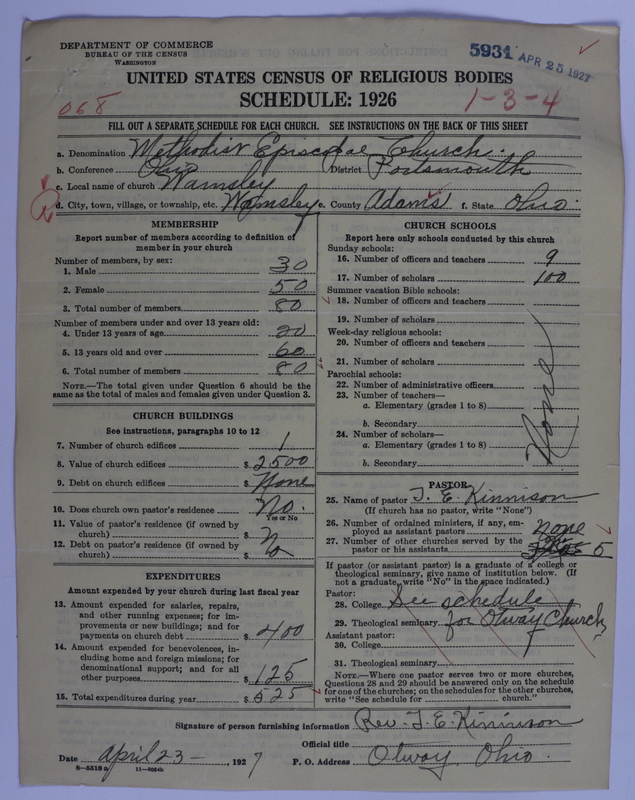 DEPARTMENT OF COMMERCE
BUREAU OF THE CENSUS
WASHINGTON
5931 APR 25 1927
UNITED STATES CENSUS OF RELIGIOUS BODIES
SCHEDULE: 1926
068
1-3-4
FILL OUT A SEPARATE SCHEDULE FOR EACH CHURCH. SEE INSTRUCTIONS ON THE BACK OF THIS SHEET
a. Denomination Methodist Episcopal Church.
b. Conference Ohio District Portsmouth
c. Local name of church Wamsley
d. City, town, village, or township, etc. Wamsley e. County Adams f. State Ohio.
MEMBERSHIP
Report number of members according to definition of
member in your church
Number of members, by sex:
1. Male 30
2. Female 50
3. Total number of members 80
Number of members under and over 13 years old:
4. Under 13 years of age 20
5. 13 years old and over 60
6. Total number of members 80
NOTE.—The total given under Question 6 should be
same as the total of males and females given under Question 3.
CHURCH BUILDINGS
See instructions, paragraphs 10 to 12
7. Number of church edifices 1
8. Value of church edifices $ 2500
9. Debt on church edifices $ None
10. Does church own pastor's residence? No.
Yes or No
11. Value of pastor's residence (if owned by
church) $ No
12. Debt on pastor's residence (if owned by
church) $
EXPENDITURES
Amount expended by your church during last fiscal year
13. Amount expended for salaries, repairs,
and other running expenses; for im-
provements or new buildings; and for
payments on church debt $ 400
14. Amount expended for benevolences, in-
cluding home and foreign missions; for
denominational support; and for all
other purposes $ 125
15. Total expenditures during year $ 525
CHURCH SCHOOLS
Report here only schools conducted by this church
Sunday schools:
16. Number of officers and teachers 9
17. Number of scholars 100
Summer vacation Bible schools:
18. Number of officers and teachers
19. Number of scholars
Week-day religious schools:
20. Number of officers and teachers
21. Number of scholars
Parochial schools:
22. Number of administrative officers
23. Number of teachers—
a. Elementary (grades 1 to 8)
b. Secondary
24. Number of scholars—
a. Elementary (grades 1 to 8)
b. Secondary
None
PASTOR
25. Name of pastor T. E. Kinnison
(If church has no pastor, write "None")
26. Number of ordained ministers, if any, em-
ployed as assistant pastors none
27. Number of other churches served by the
pastor or his assistants 5
If pastor (or assistant pastor) is a graduate of a college or
theological seminary, give name of institution below. (If
not a graduate, write "No" in the space indicated.)
Pastor:
28. College See schedule
29. Theological seminary for Otway Church
Assistant pastor:
30. College
31. Theological seminary
NOTE.—Where one pastor serves two or more churches,
Questions 28 and 29 should be answered only on the schedule
for one of the churches; on the schedules for the other churches,
write "See schedule for church."
Signature of person furnishing information Rev. T. E. Kinnison
Official title
Date April 23 — , 1927 P. O. Address Otway, Ohio.